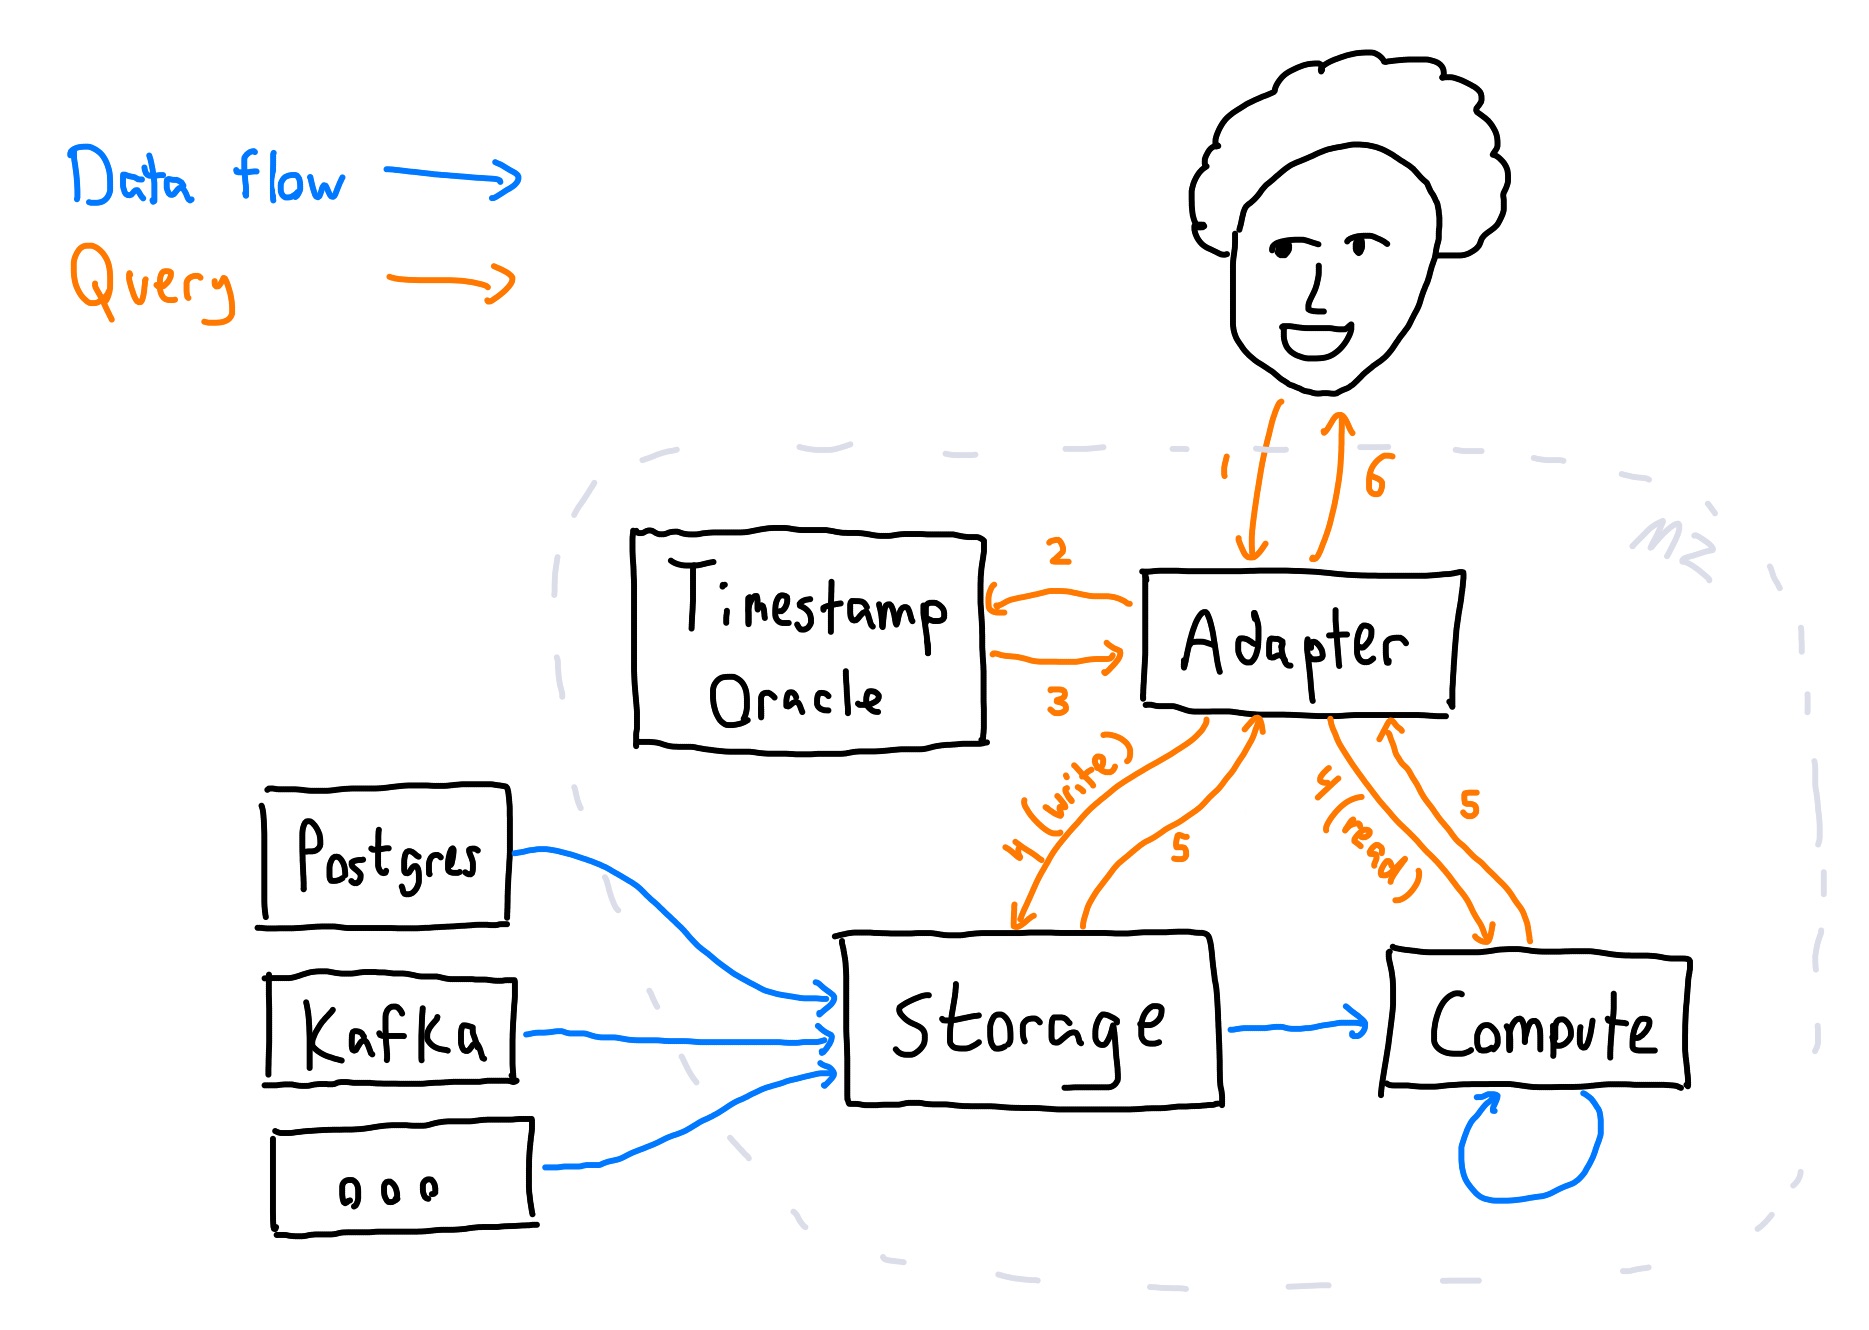 Data flow
Query
1
6
Mz
2
Timestamp
Oracle
Adapter
3
4 (write)
5
4 (read)
5
Postgres
Kafka
Storage
Compute
ooo